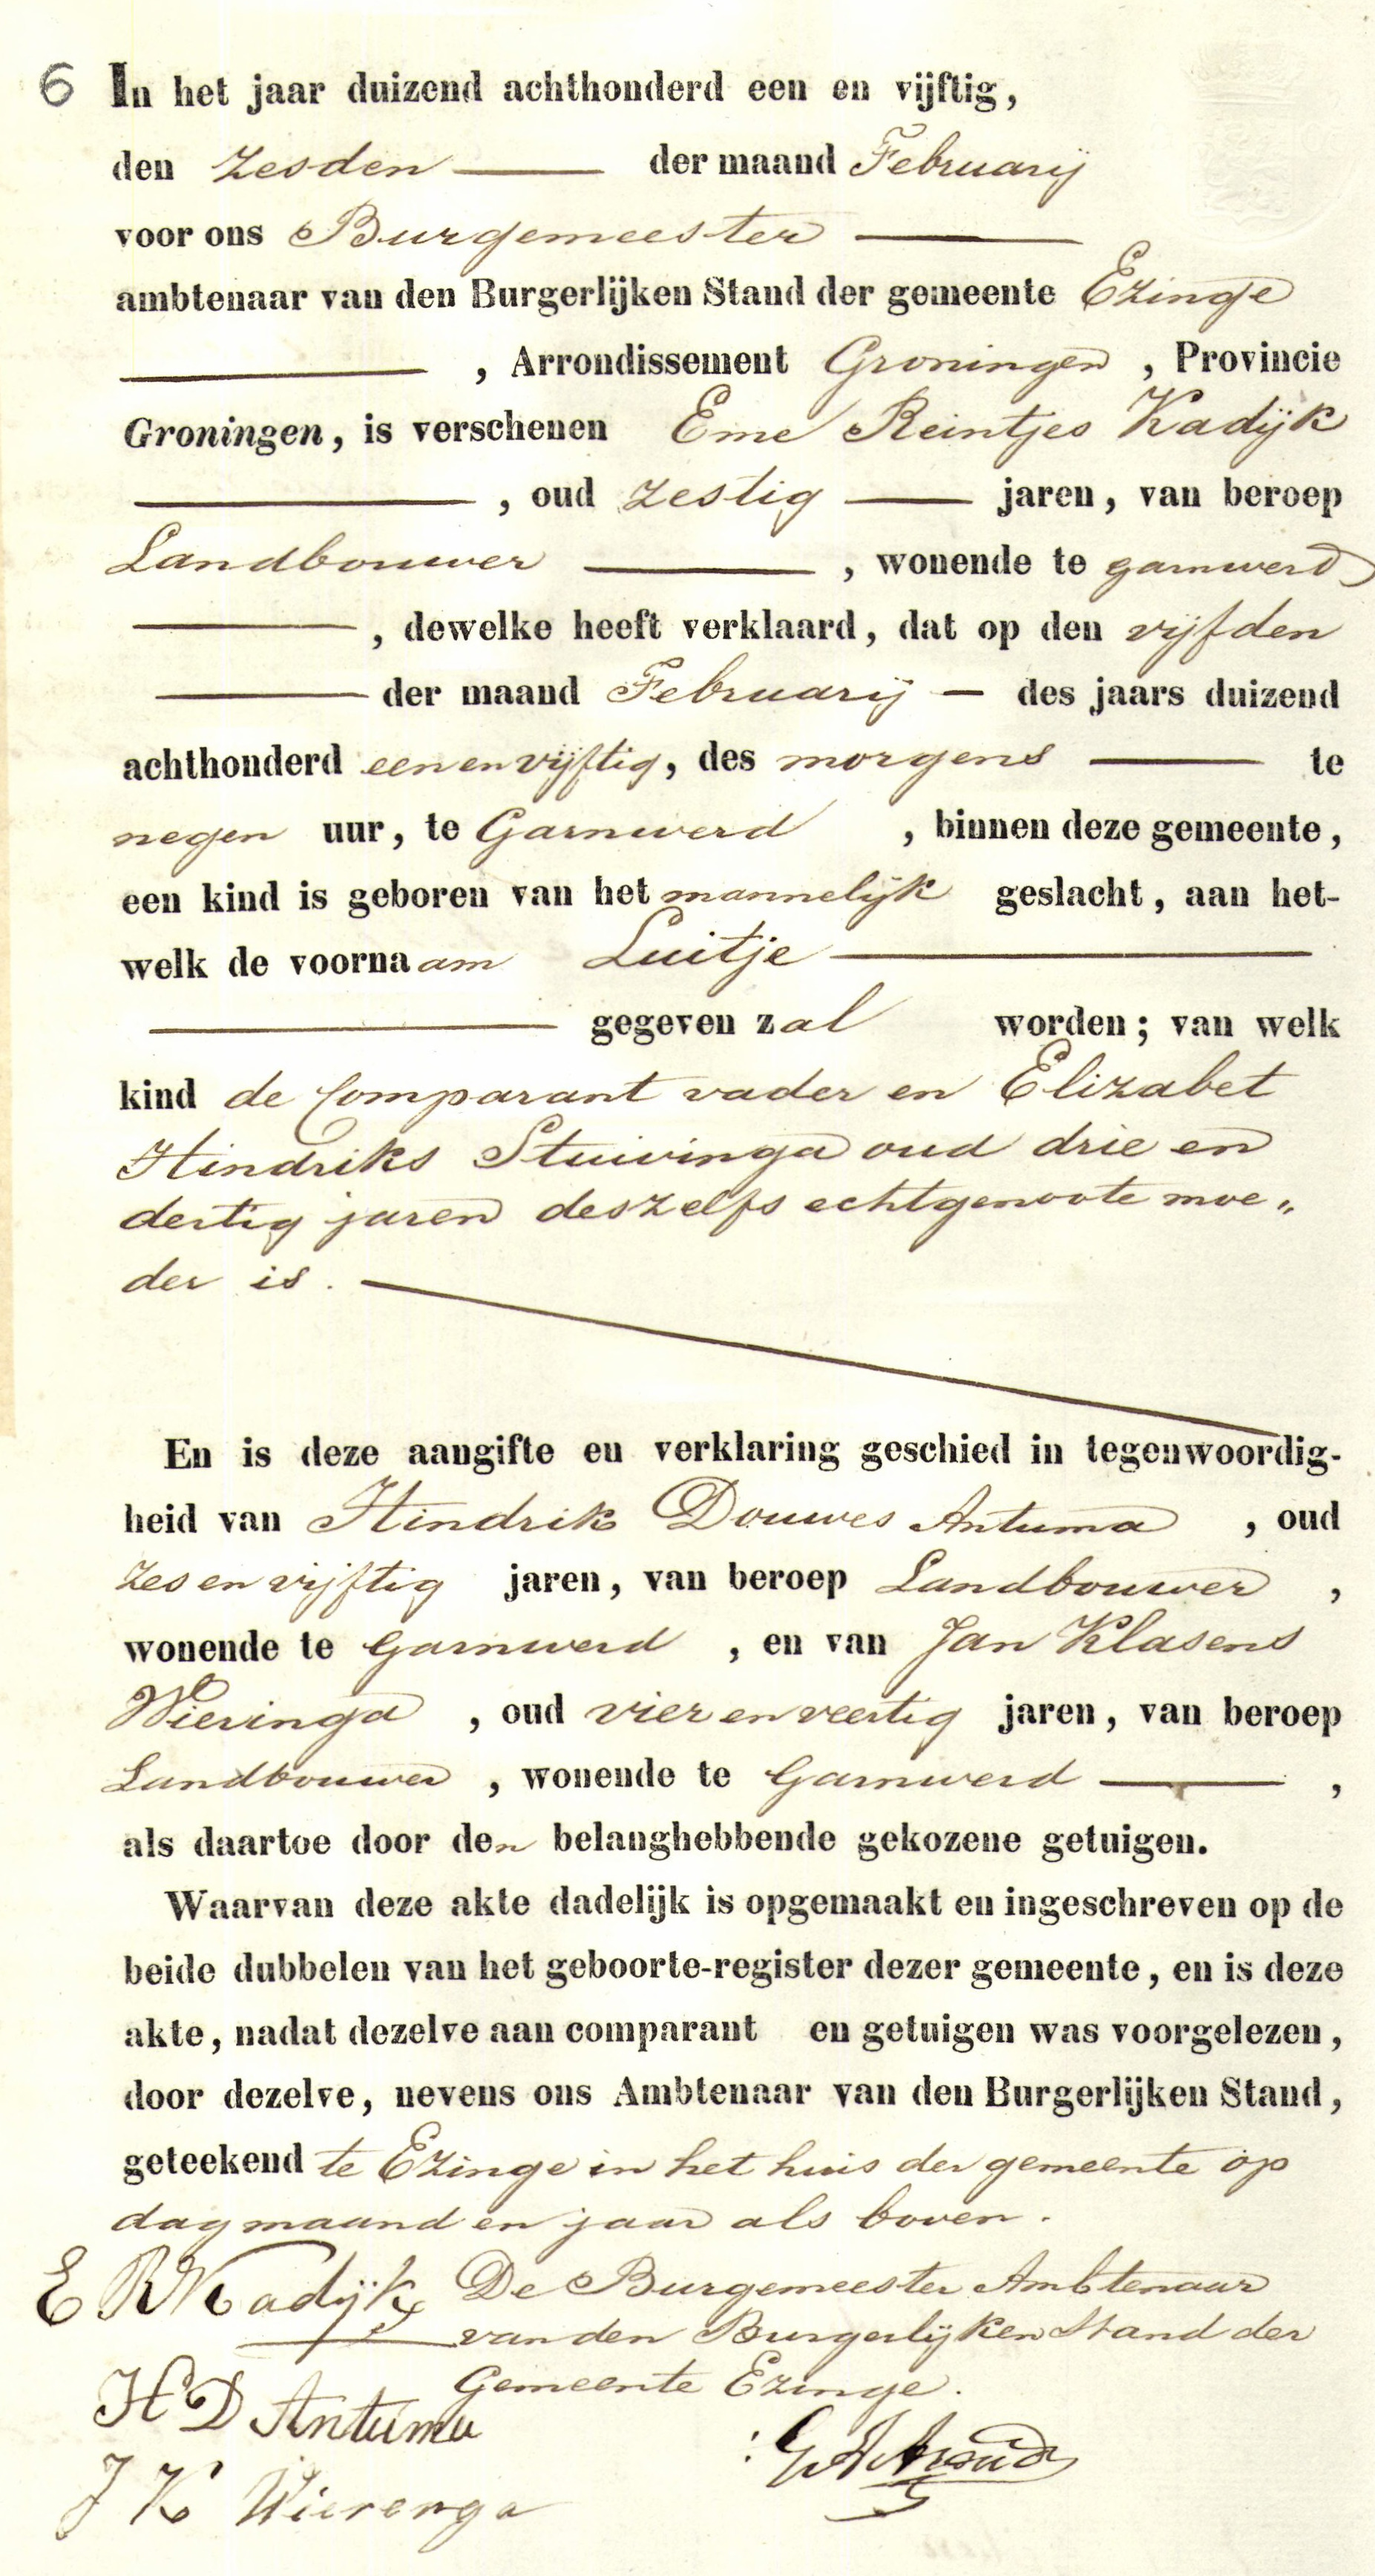 6 In het jaar duizend achthonderd een en vijftig,
den zesden der maand Februarij
voor ons Burgemeester
ambtenaar van den Burgerlijken Stand der gemeente Ezinge
, Arrondissement Groningen , Provincie
Groningen, is verschenen Eme Reintjes Kadijk
, oud zestig jaren, van beroep
Landbouwer , wonende te garnwerd
, dewelke heeft verklaard, dat op den vijfden
der maand Februarij des jaars duizend
achthonderd een en vijftig, des morgens te
negen uur, te Garnwerd , binnen deze gemeente,
een kind is geboren van het mannelijk geslacht, aan het-
welk de voornaam Luitje
gegeven zal worden; van welk
kind de Comparant vader en Elizabet
Hindriks Stuivinga oud drie en
dertig jaren deszelfs echtgenoote moe„
der is.
En is deze aangifte en verklaring geschied in tegenwoordig-
heid van Hindrik Douwes Antuma , oud
zes en vijftig jaren, van beroep Landbouwer ,
wonende te Garnwerd , en van Jan Klasens
Wieringa , oud vier en veertig jaren, van beroep
Landbouwer , wonende te Garnwerd ,
als daartoe door den belanghebbende gekozene getuigen.
Waarvan deze akte dadelijk is opgemaakt en ingeschreven op de
beide dubbelen van het geboorte-register dezer gemeente, en is deze
akte, nadat dezelve aan comparant en getuigen was voorgelezen,
door dezelve, nevens ons Ambtenaar van den Burgerlijken Stand,
geteekend te Ezinge in het huis der gemeente op
dag maand en jaar als boven.
E R Kadijk De Burgemeester Ambtenaar
van den Burgerlijken Stand der
Gemeente Ezinge.
H D Antuma
J K Wierenga